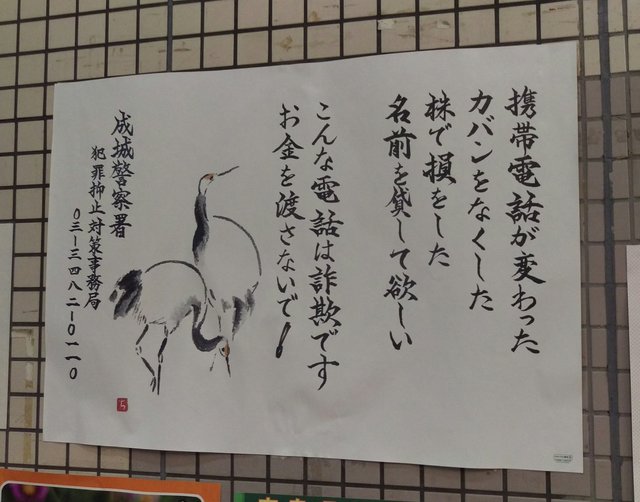 携帯電話が変わった
カバンをなくした
株で損をした
名前を貸して欲しい
こんな電話は詐欺です
お金を渡さないで！
成城警察署
犯罪抑止対策事務局
〇三ー三四八二ー〇一一〇